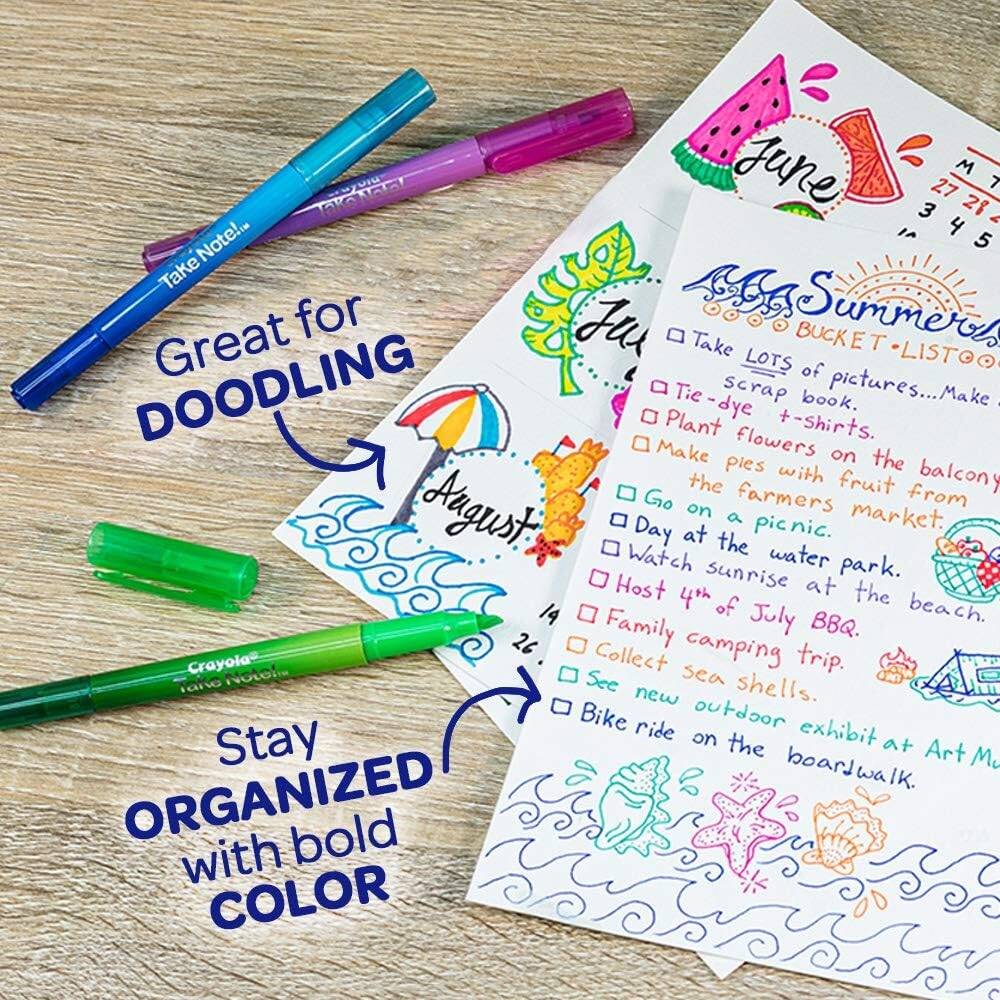 Crayola
Take Note!™
Take Note!™
Great for
DOODLING
June
M T
27 28 2
3 4 5
August
14
26
Summer
BUCKET•LIST
Take LOTS of pictures...Make
scrap book.
Tie-dye t-shirts.
Plant flowers on the balcony
Make pies with fruit from
the farmers market.
Go on a picnic.
Day at the water park.
Watch sunrise at the beach.
Host 4th of July BBQ.
Family camping trip.
Collect sea shells.
See new outdoor exhibit at Art
Bike ride on the boardwalk.
Crayola®
Take Note!™
Stay
ORGANIZED
with bold
COLOR